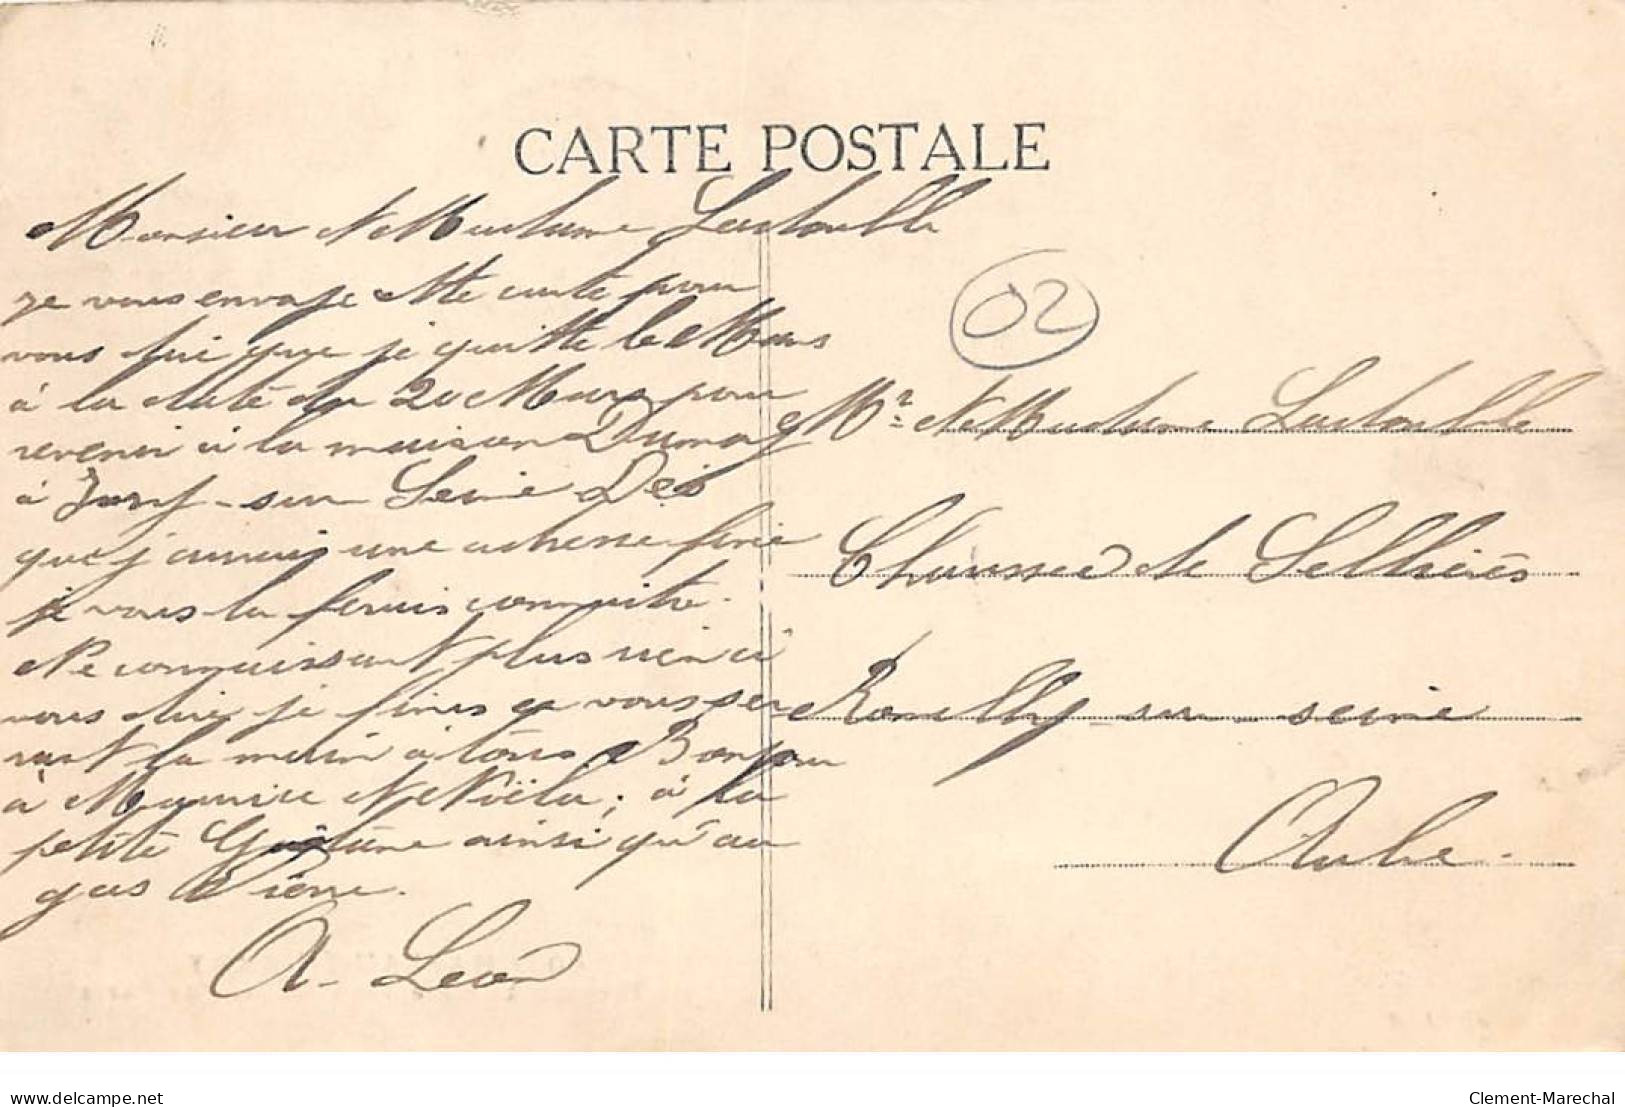 CARTE POSTALE
Monsieur et Madame
je vous envoje cette carte pour
vous dire que je quitte le Mans
à la date du 20 Mars pour
revenir à la maison
à sur Seine Dés
que j'aurai une adresse fixe
je vous la ferais connaitre.
Ne connaissant plus rien à
vous dire je finis en vous ser
rant la main à tous Bonjour
à Maurice et Noëla; à la
petite ainsi qu'au
gas Pierre.
A. Léon
02
Mr et Madame
Chaussée de Sellières
Romilly-sur-seine
Aube.
delcampe.net
Clement-Marechal